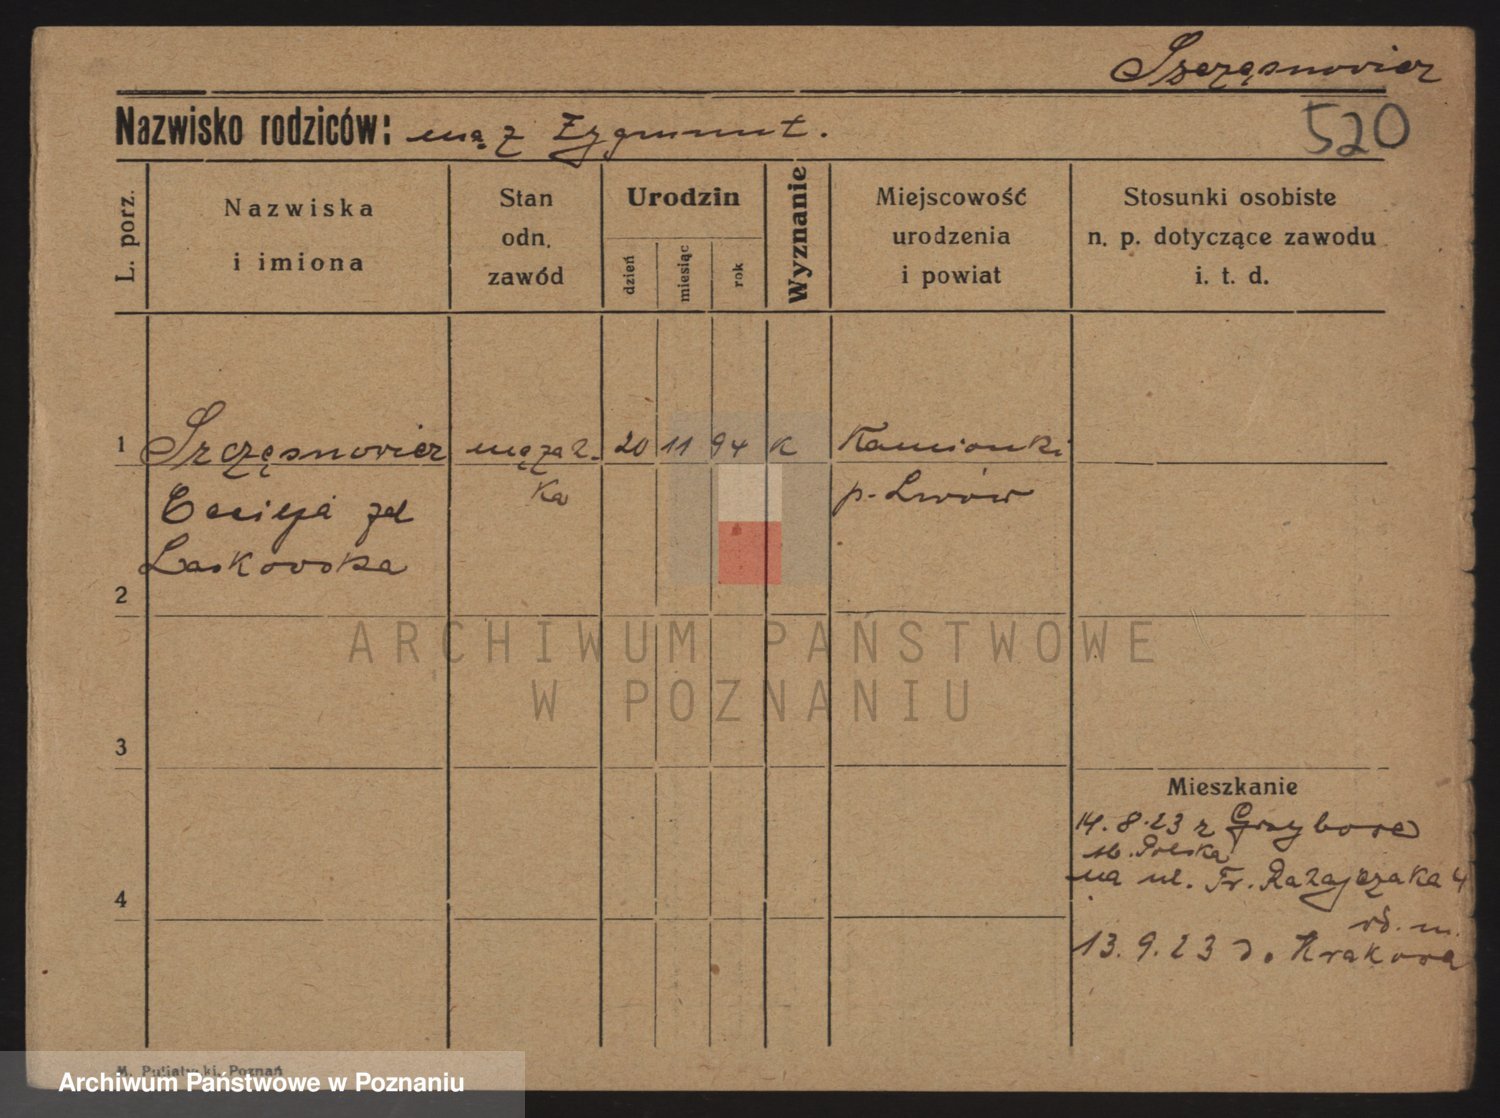 Szczęsnowicz
Nazwisko rodziców: mąż Zygmunt.
520
L. porz.
Nazwiska
i imiona
Stan
odn.
zawód
Urodzin
dzień
miesiąc
rok
Wyznanie
Miejscowość
urodzenia
i powiat
Stosunki osobiste
n. p. dotyczące zawodu
i. t. d.
1 Szczęsnowicz mężat. 20 11 94 K Kamionki
ka p. Lwów
Cecilja zd
Laskowska
2
ARCHIWUM PAŃSTWOWE
W POZNANIU
3
Mieszkanie
14. 8. 23 z
Polska
na ul. Fr. Ratajczaka 4
4
13. 9. 23 do Krakowa
Poznań
Archiwum Państwowe w Poznaniu